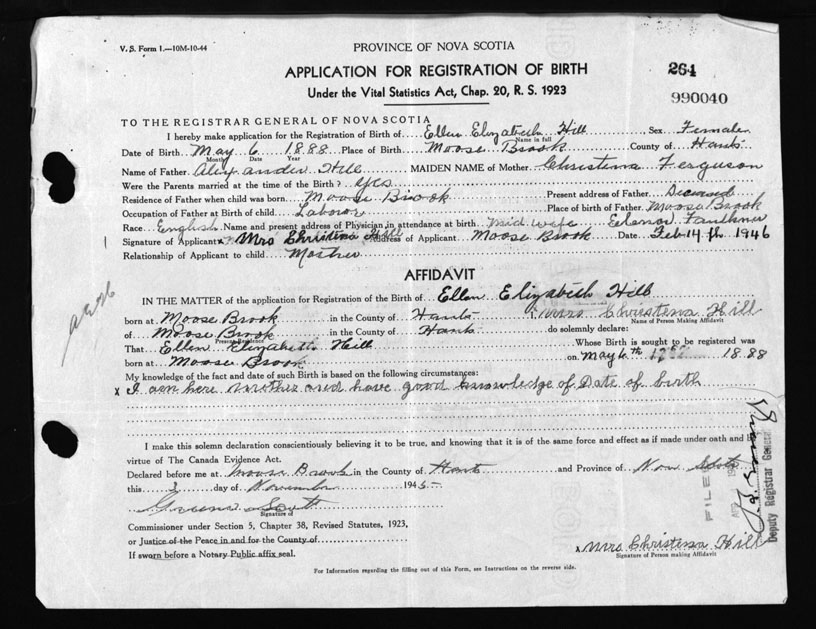 V. S. Form 1.—10M-10-44
PROVINCE OF NOVA SCOTIA
APPLICATION FOR REGISTRATION OF BIRTH
264
Under the Vital Statistics Act, Chap. 20, R. S. 1923
990040
TO THE REGISTRAR GENERAL OF NOVA SCOTIA
I hereby make application for the Registration of Birth of Ellen Elizabeth Hill Sex Female
Name in full
Date of Birth May 6 1888 Place of Birth Moose Brook County of Hants
Month Date Year
Name of Father Alexander Hill MAIDEN NAME of Mother Christena Ferguson
Were the Parents married at the time of Birth? Yes
Residence of Father when child was born Moose Brook Present address of Father Deceased
Occupation of Father at Birth of child Laboror Place of birth of Father Moose Brook
Race English Name and present address of Physician in attendance at birth Mid wife Faulkner
Signature of Applicant x Mrs Christena Hill Address of Applicant Moose Brook Date Feb 14th 1946
Relationship of Applicant to child Mother
AFFIDAVIT
IN THE MATTER of the application for Registration of the Birth of Ellen Elizabeth Hill
born at Moose Brook in the County of Hants I Mrs Christena Hill
Name of Person Making Affidavit
of Moose Brook in the County of Hants do solemnly declare:
Present Residence
That Ellen Elizabeth Hill Whose Birth is sought to be registered was
born at Moose Brook on May 6th 1888
My knowledge of the fact and date of such Birth is based on the following circumstances:
x I am here mother and have good knowledge of Date of birth
I make this solemn declaration conscientiously believing it to be true, and knowing that it is of the same force and effect as if made under oath and by
virtue of The Canada Evidence Act.
Declared before me at Moose Brook in the County of Hants and Province of Nova Scotia
this 3 day of November 1945
Scott
Signature of
Commissioner under Section 5, Chapter 38, Revised Statutes, 1923,
or Justice of the Peace in and for the County of
If sworn before a Notary Public affix seal.
x Mrs Christena Hill
Signature of Person making Affidavit
For Information regarding the filling out of this Form, see Instructions on the reverse side.
FILED
Deputy Registrar General